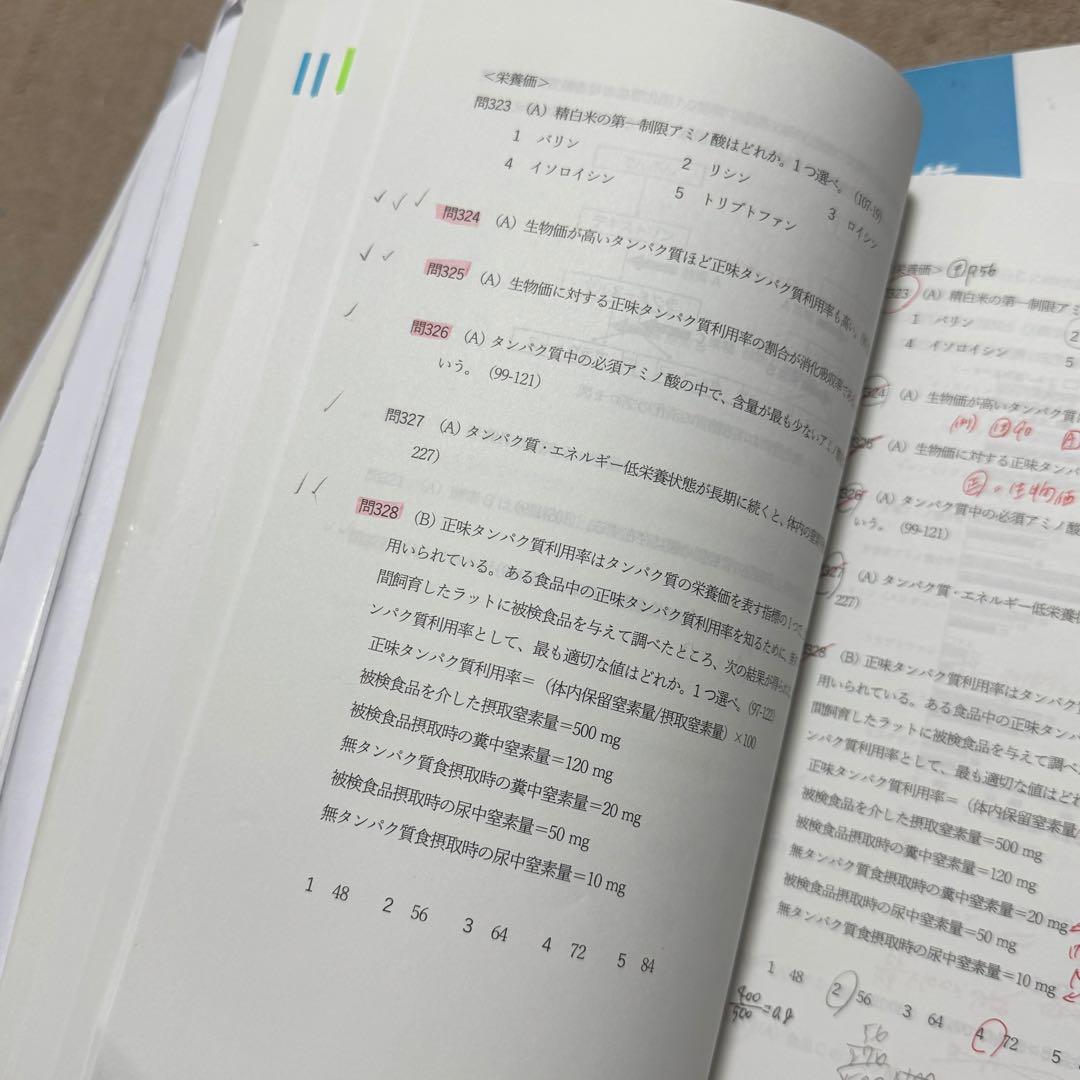 <栄養価>
問323 (A) 精白米の第一制限アミノ酸はどれか。1つ選べ。(107-19)
1 バリン 2 リシン 3 ロイシン
4 イソロイシン 5 トリプトファン
問324 (A) 生物価が高いタンパク質ほど正味タンパク質利用率も高い。
問325 (A) 生物価に対する正味タンパク質利用率の割合が消化吸収率
問326 (A) タンパク質中の必須アミノ酸の中で、含量が最も少ないアミノ
いう。(99-121)
問327 (A) タンパク質・エネルギー低栄養状態が長期に続くと、体内の窒素
227)
問328 (B) 正味タンパク質利用率はタンパク質の栄養価を表す指標の1つで、
用いられている。ある食品中の正味タンパク質利用率を知るために、
間飼育したラットに被検食品を与えて調べたところ、次の結果が得られた。
ンパク質利用率として、最も適切な値はどれか。1つ選べ。(97-122)
正味タンパク質利用率=(体内保留窒素量/摂取窒素量)×100
被検食品を介した摂取窒素量=500 mg
被検食品摂取時の糞中窒素量=120 mg
無タンパク質食摂取時の糞中窒素量=20 mg
被検食品摂取時の尿中窒素量=50 mg
無タンパク質食摂取時の尿中窒素量=10 mg
1 48 2 56 3 64 4 72 5 84
栄養価> p56
323 (A) 精白米の第一制限アミ
1 バリン 2
4 イソロイシン 5
324 (A) 生物価が高いタンパク質
(例) 90
(A) 生物価に対する正味タンパ
生物価
326 (A) タンパク質中の必須アミノ酸
いう。(99-121)
(A) タンパク質・エネルギー低栄養
227)
328 (B) 正味タンパク質利用率はタンパク
用いられている。ある食品中の正味タンパ
間飼育したラットに被検食品を与えて調べ
ンパク質利用率として、最も適切な値はど
正味タンパク質利用率=(体内保留窒素量
被検食品を介した摂取窒素量=500 mg
被検食品摂取時の糞中窒素量=120 mg
無タンパク質食摂取時の糞中窒素量=20 mg
被検食品摂取時の尿中窒素量=50 mg
無タンパク質食摂取時の尿中窒素量=10 mg
1 48 2 56 3 64 4 72 5
400
500
56